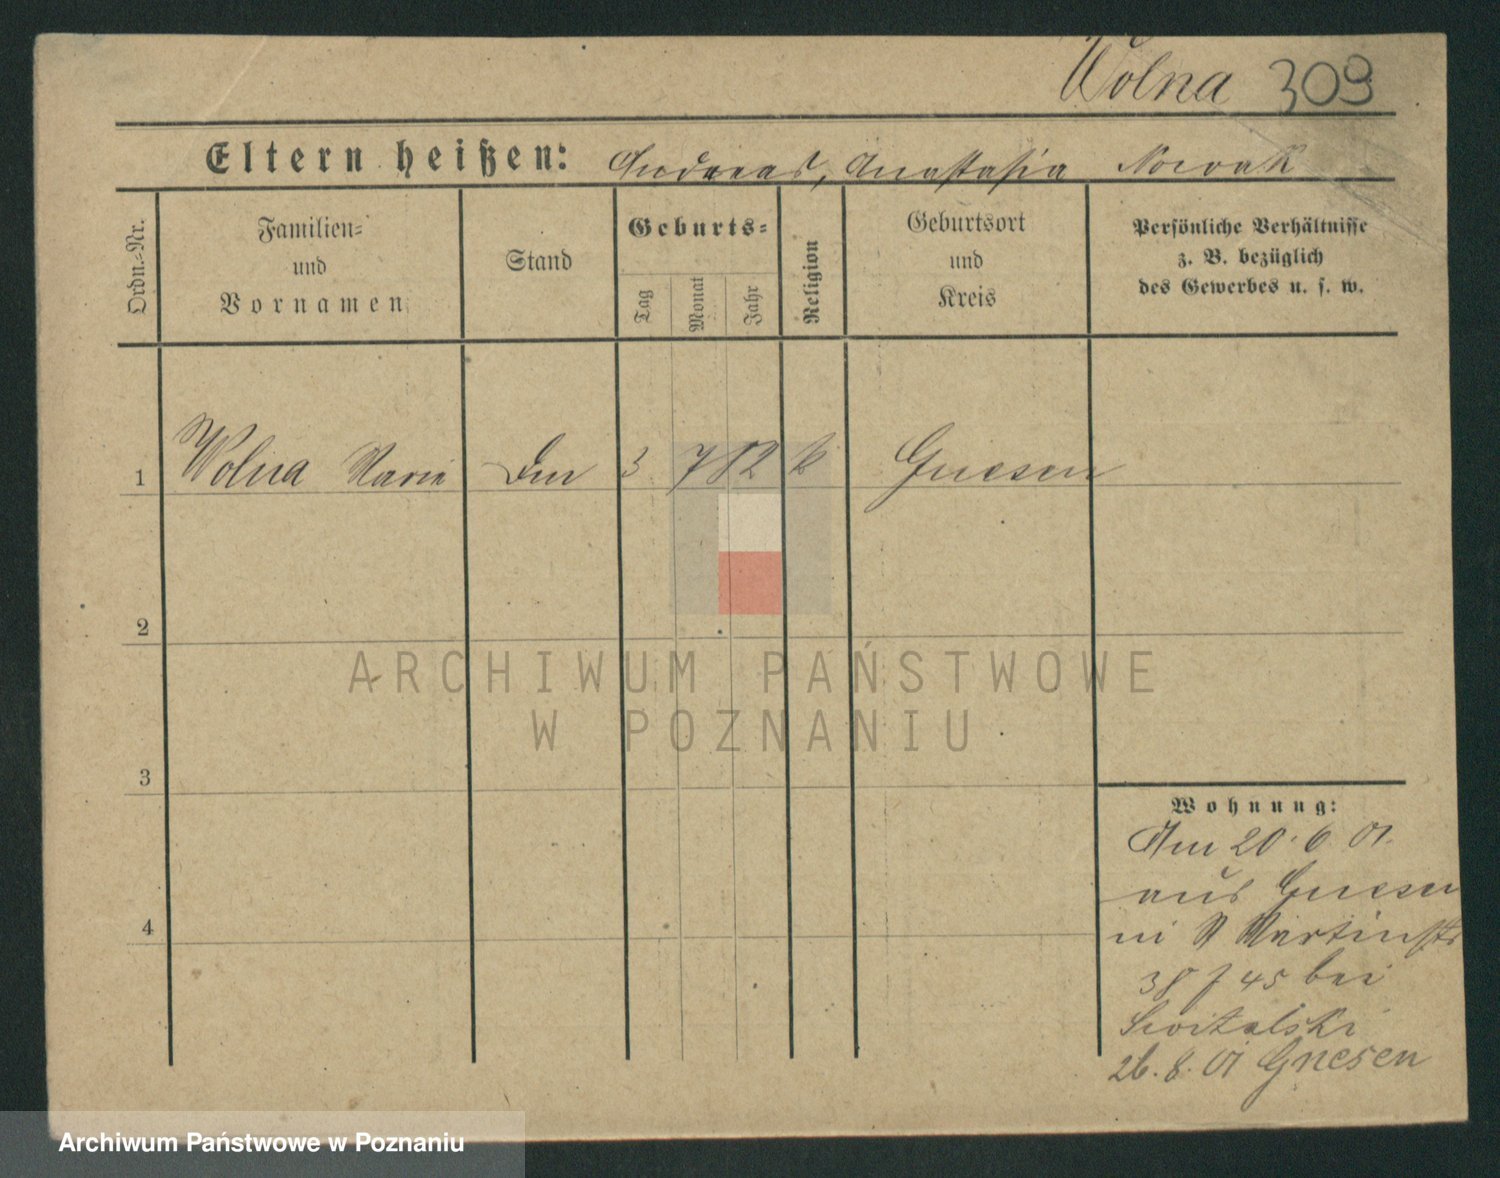 Wolna 309
Eltern heißen: Andreas, Anastasia Nowak
Ordn.-Nr.
Familien-
und
Vornamen
Stand
Geburts-
Tag
Monat
Jahr
Religion
Geburtsort
und
Kreis
Persönliche Verhältnisse
z. B. bezüglich
des Gewerbes u. s. w.
1 Wolna Marie 3 7 82 k Gnesen
2
3
4
Wohnung:
Am 20.6.01.
aus Gnesen
in St Martinstr
38 45 bei
Switalski
26.8.01 Gnesen
ARCHIWUM PAŃSTWOWE
W POZNANIU
Archiwum Państwowe w Poznaniu